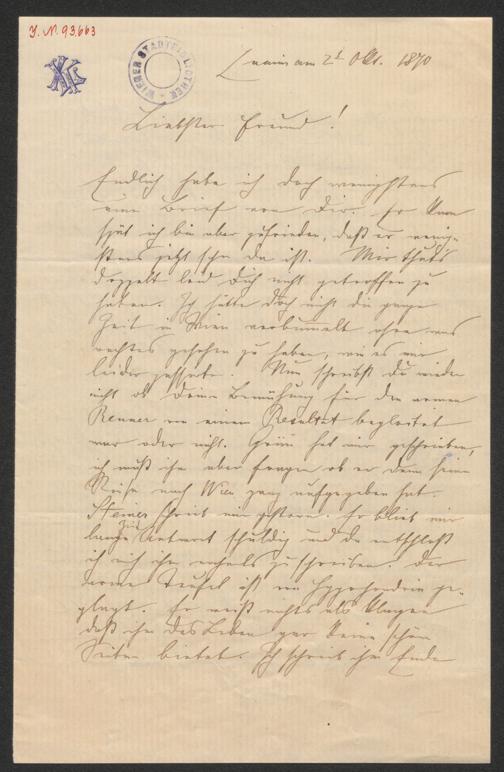 J. N. 93.663
WIENER STADTBIBLIOTHEK
am 2t Okt. 1890
Liebster Freund!
Endlich habe ich doch wenigstens
einen Brief von Dir. So
spät ich bin aber zufrieden, daß er wenig-
stens jetzt schon da ist. Mir thut's
doppelt leid Dich nicht getroffen zu
haben. Ich hätte doch nicht die ganze
Zeit in Wien verbummelt ohne was
rechtes gesehen zu haben, wie es mir
leider passirte. Nun schreibst Du wieder
nicht ob Deine Bemühung für den armen
Renner von einem Resultat begleitet
war oder nicht. Grün hat mir geschrieben,
ich muß ihn aber fragen ob er denn seine
Reise nach Wien ganz aufgegeben hat.
Steiner schrieb mir gestern. Er blieb mir
lange Zeit Antwort schuldig und da entschloß
ich mich ihm nochmals zu schreiben. Der
arme Teufel ist von Hypochondrie ge-
plagt. Er weiß nichts als Klagen
daß ihm das Leben gar keine schönen
Seiten bietet. Ich schrieb ihm Ende